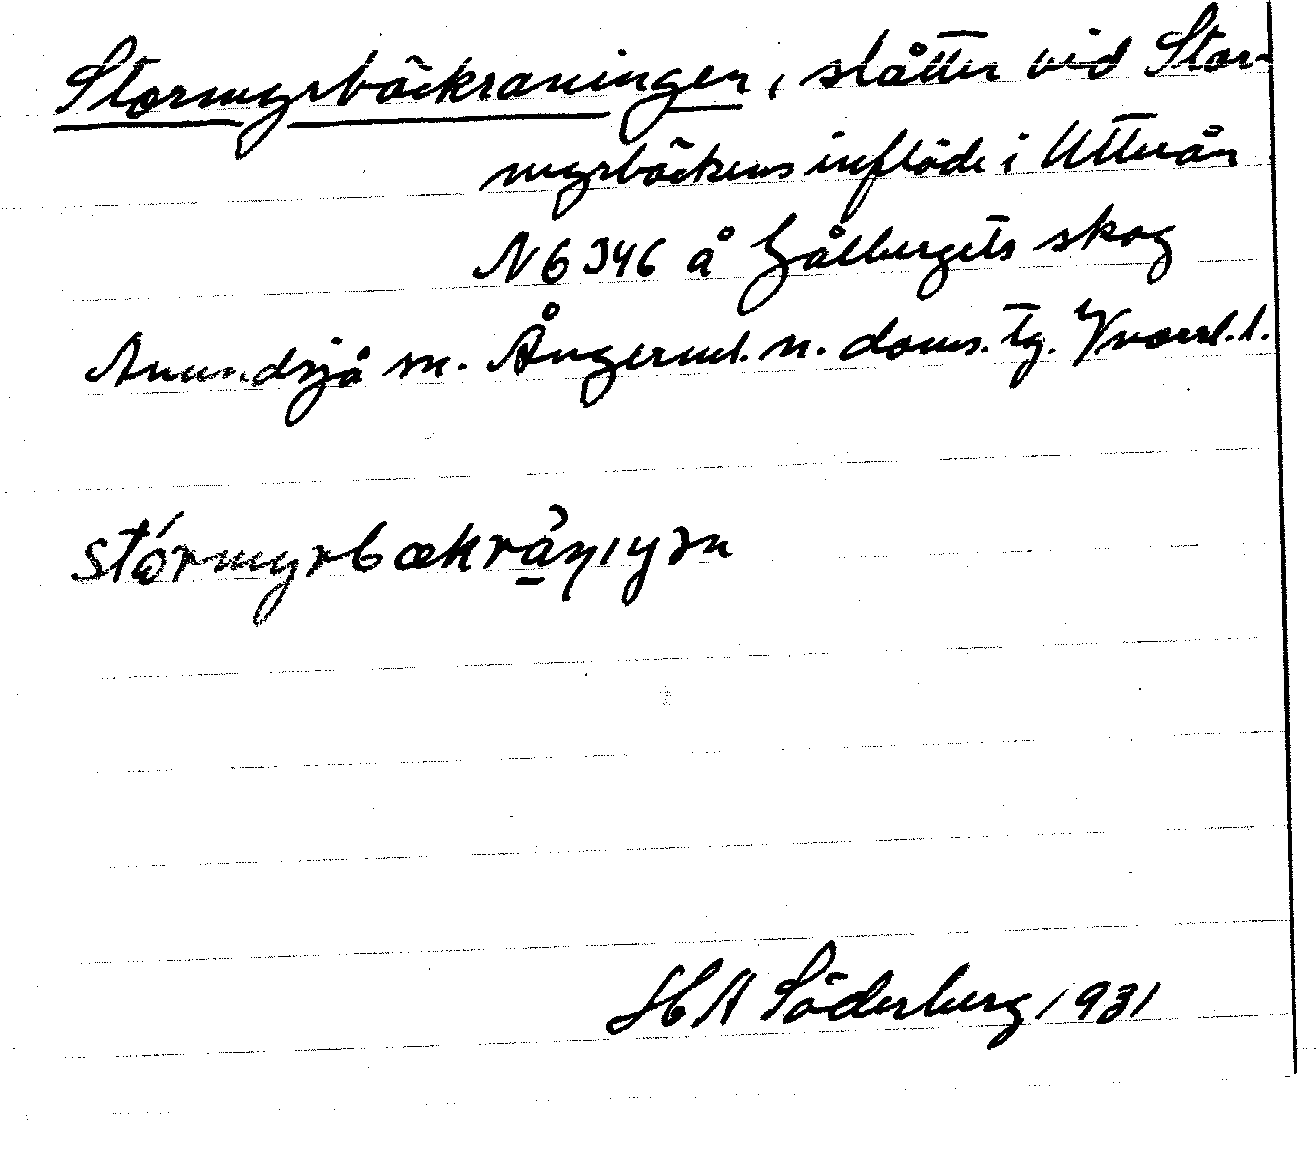 Stormyrbäckraningen, slåtter vid Stor-
myrbäckens inflöde i Utterån
N 6346 å Gålbergets skog
Anundsjö sn. Ångerml. n. doms. tg. Vnorrl. l.
stórmyrbækrån̨ıŋən
H A Söderberg 1931